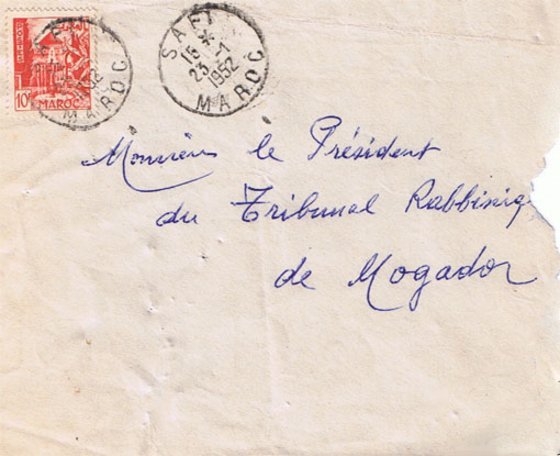 10F MAROC
SAFI
15 * 
23 -1
1952
MAROC
MAROC
Monsieur le Président
du Tribunal Rabbiniq
de Mogador